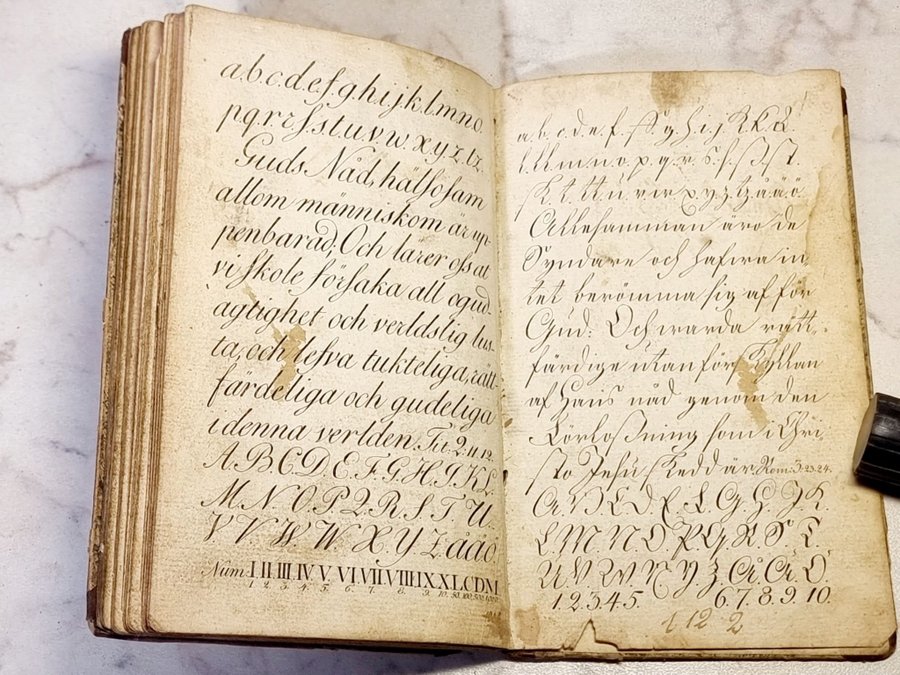 a.b.c.d.e.f.g.h.i.j.k.l.m.n.o.
p.q.r.r.ſ.s.t.u.v.w.x.y.z.tz.
Guds Nåd, hälsosam
allom människom är up-
penbarad, Och lärer oſs at
vi ſkole förſaka all ogud
agtighet och verldslig lus-
ta, och lefva tukteliga, rätt-
färdeliga och gudeliga
i denna verlden. Tit. 2. 11. 12.
A.B.C.D.E.F.G.H.I.K.L.
M.N.O.P.Q.R.S.T.U.
V.V.W.W.X.Y.Z.å.ä.ö.
Num. I.II.III.IV.V.VI.VII.VIII.IX.X.L.C.D.M
1. 2. 3. 4. 5. 6. 7. 8. 9. 10. 50. 100. 500. 1000
a.b.c.d.e.f.ff.g.h.i.j.k.k.
l.ll.m.n.o.p.q.r.s.ſ.ß.ſt.
ſk.t.tt.u.v.w.x.y.z.tz.å.ä.ö.
Alleſamman äro de
Syndare och hafwa in
tet berömma ſig af för
Gud: Och warda rätt-
färdige utan förſkyllan
af Hans nåd genom den
Förloßning ſom i Chri
ſto Jeſu ſkedd är. Rom. 3. 23. 24.
A.B.C.D.E.F.G.H.J.K.
L.M.N.O.P.Q.R.S.T.
U.V.W.X.Y.Z.Å.Ä.Ö.
1.2.3.4.5. 6.7.8.9.10.